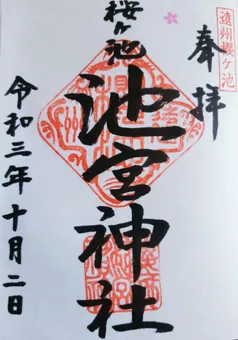 遠州櫻ヶ池
奉拝
桜ヶ池
池宮神社
令和三年十月二日